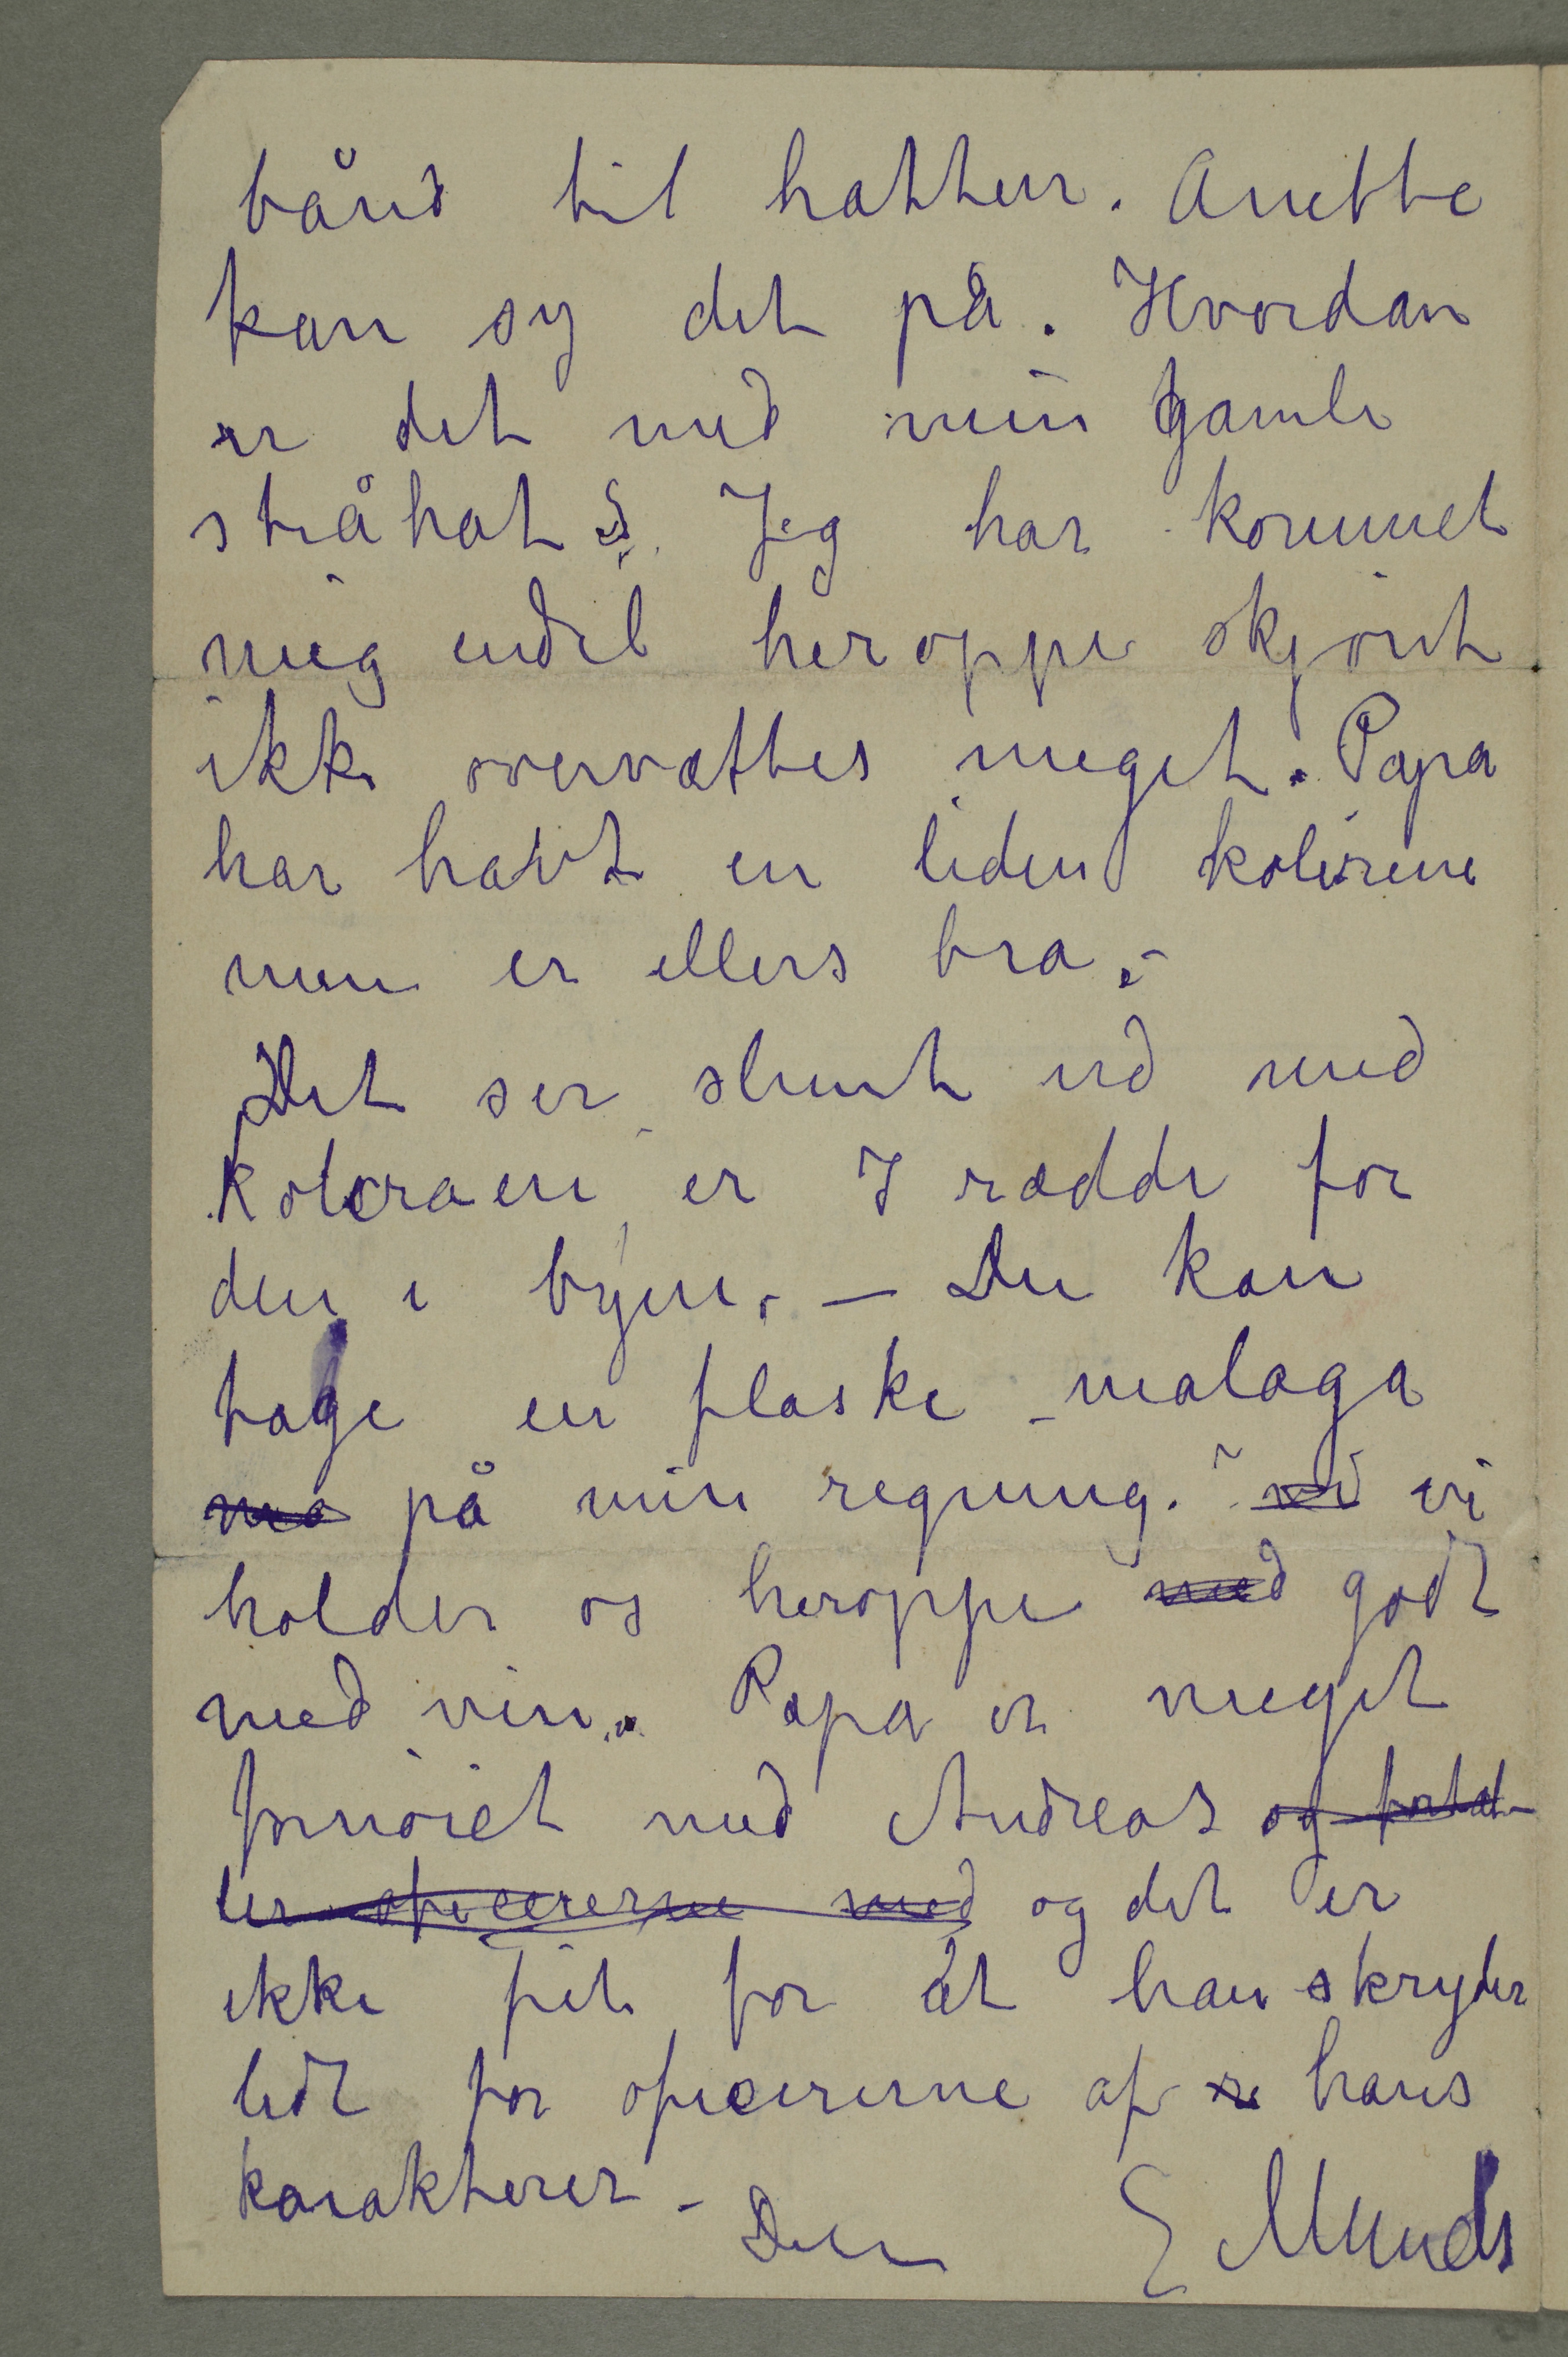 bånd til hatten. Anette
kan sy det på. Hvordan
er det med min gamle
stråhat? Jeg har kommet
mig endel heroppe skjönt
ikke overvættes meget. Papa
har havt en liden kolerine
men er ellers bra.–
Det ser slemt ud med
koleraen er I rædde for
den i byen. – Du kan
tage en flaske malaga
ma på min regning. – vi vi
holder os heroppe med godt
med vin. Papa er meget
fornöiet med Andreas og fortæl-
ler oficererne med og det er
ikke frit for at han skryder
lidt for oficererne af hans
karakterer – Din E Munch